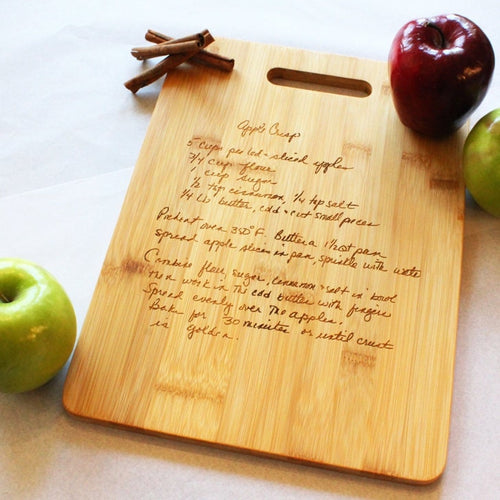 Apple Crisp
5 cups peeled + sliced apples
3/4 cup flour
1 cup sugar
1/2 tsp cinnamon, 1/4 tsp salt
1/4 lb butter, cold + cut small pieces
Preheat oven 350°F. Butter a 1 1/2 qt pan
spread apple slices in pan, sprinkle with water
Combine flour, sugar, cinnamon + salt in bowl
then work in the cold butter with fingers
Spread evenly over the apples.
Bake for 30 minutes or until crust
is golden.